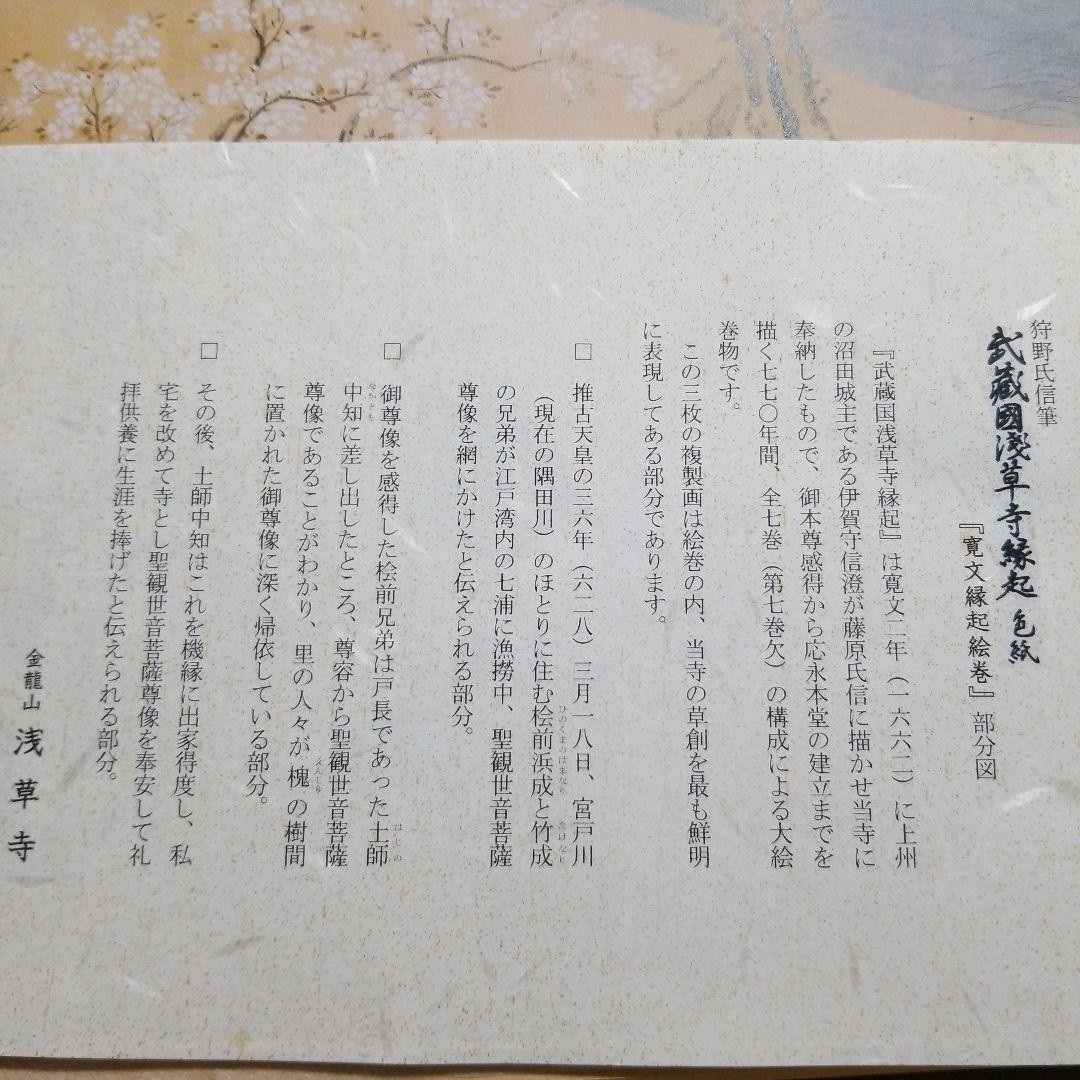 狩野氏信筆
武蔵國淺草寺縁起 色紙
『寛文縁起絵巻』部分図
『武蔵国浅草寺縁起』は寛文二年（一六六二）に上州
の沼田城主である伊賀守信澄が藤原氏信に描かせ当寺に
奉納したもので、御本尊感得から応永本堂の建立までを
描く七七〇年間、全七巻（第七巻欠）の構成による大絵
巻物です。
この三枚の複製画は絵巻の内、当寺の草創を最も鮮明
に表現してある部分であります。
□ 推古天皇の三六年（六二八）三月一八日、宮戸川
（現在の隅田川）のほとりに住む桧前浜成と竹成
ひのくまのはまなり たけなり
の兄弟が江戸湾内の七浦に漁撈中、聖観世音菩薩
尊像を網にかけたと伝えられる部分。
□ 御尊像を感得した桧前兄弟は戸長であった土師
はじの
中知に差し出したところ、尊容から聖観世音菩薩
なかとも
尊像であることがわかり、里の人々が槐の樹間
えんじゅ
に置かれた御尊像に深く帰依している部分。
□ その後、土師中知はこれを機縁に出家得度し、私
宅を改めて寺とし聖観世音菩薩尊像を奉安して礼
拝供養に生涯を捧げたと伝えられる部分。
金龍山 浅草寺